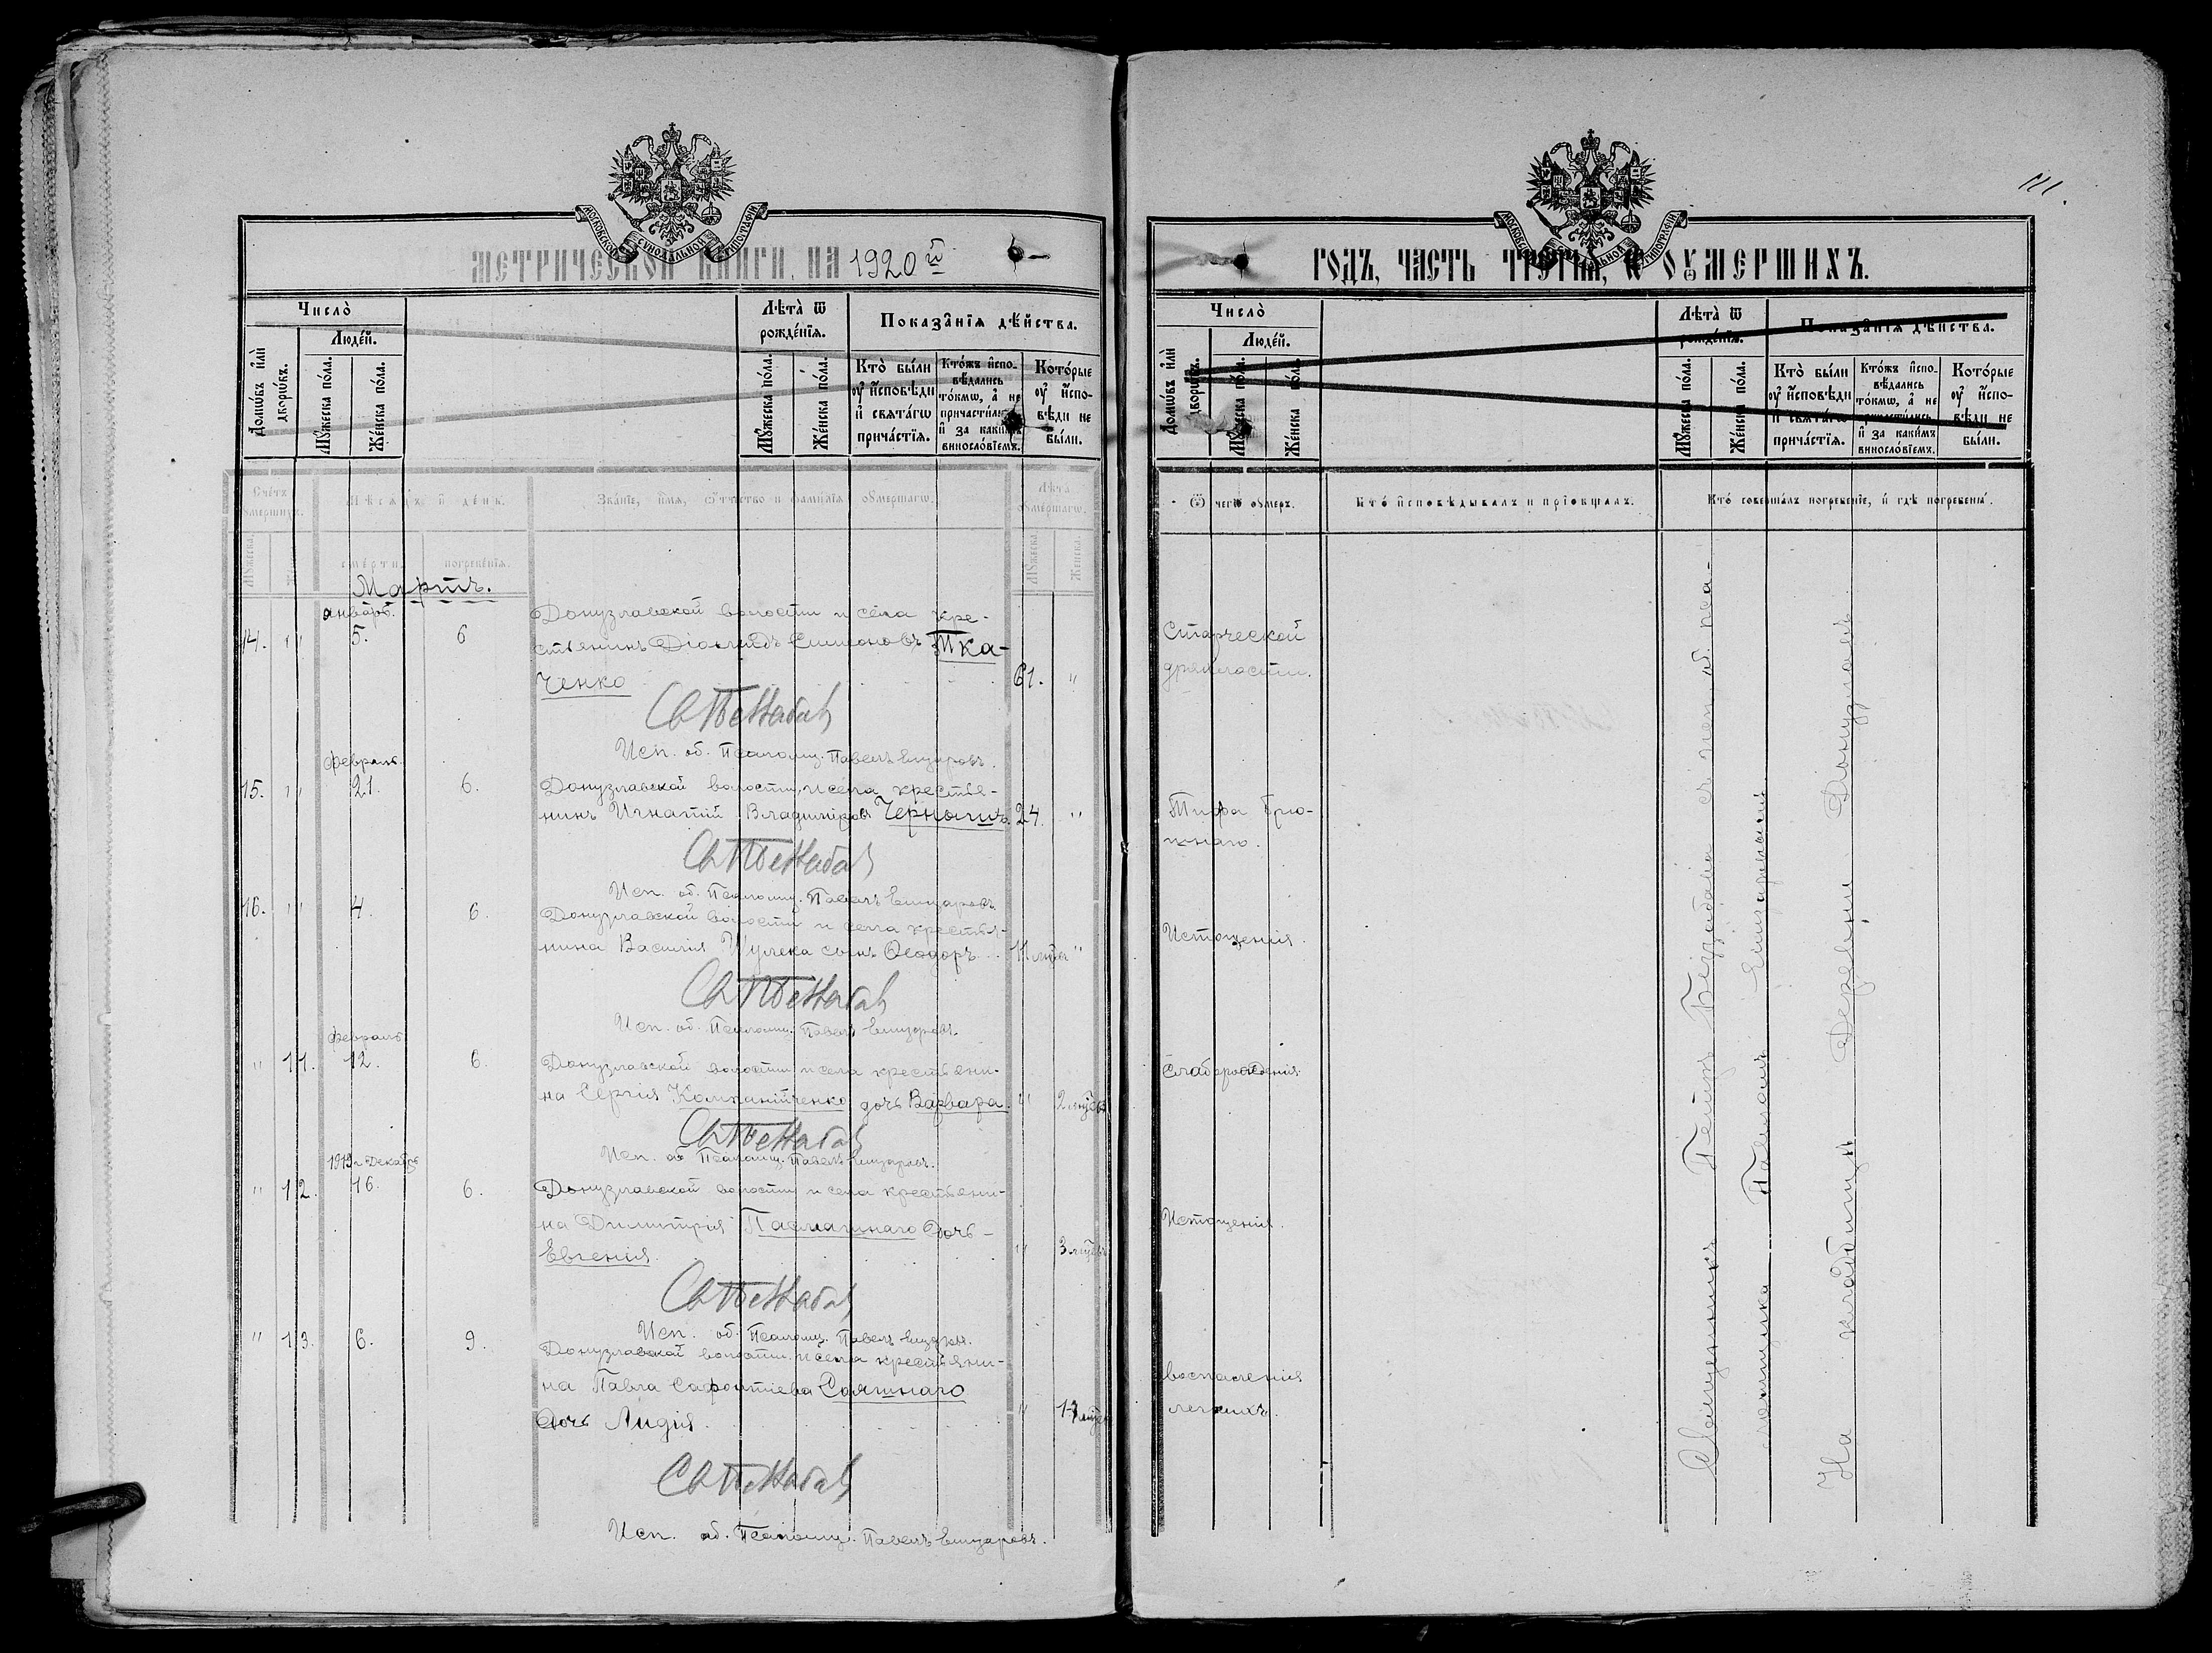 111.
МОСКОВСКОЙ СУНОДАЛЬНОЙ ТИПОГРАФІИ
МЕТРИЧЕСКОЙ КНИГИ НА 1920й
Число̀
Домѡвъ и҆лѝ дворѡвъ.
Люде́й.
Мꙋ́жеска по́ла.
Же́нска по́ла.
Лѣ́та ѿ рожде́нїѧ.
Мꙋ́жеска по́ла.
Же́нска по́ла.
Показа̑нїѧ дѣ́йства.
Кто̀ бы́ли ᲂу҆ и҆́сповѣди и҆ свѧта́гѡ прича́стїѧ.
Кто́жъ и҆сповѣ́дались то́кмѡ, а҆ не причасти́лись и҆ за каки́мъ винослові́емъ.
Кото́рые ᲂу҆ и҆́сповѣди не бы́ли.
Счетъ умершихъ.
Мꙋжеска
Мѣсяцъ и день.
смерти.
погребенія.
Званіе, имя, отчество и фамилія умершагѡ.
Лѣта умершагѡ.
Мꙋжеска
Женска
Мартъ.
январь.
14. " 5. 6 Донузлавской волости и села кре-
стьянинъ Діомидъ Симоновъ Тка-
ченко 61. "
Исп. об. Псаломщ. Павелъ
февраль.
15. " 21. 6. Донузлавской волости и села крестья-
нинъ Игнатій Владиміровъ Чернышъ. 24. "
Исп. об. Псаломщ. Павелъ
16. " 4. 6. Донузлавской волости и села крестья-
нина Василія сынъ Ѳеодоръ 11 "
Исп. об. Псаломщ. Павелъ
февраль
" 11. 12. 6. Донузлавской волости и села крестьяни-
на Сергія Компанійченко дочь Варвара. " 2
Исп. об. Псаломщ. Павелъ
1919 г. Декабрь
" 12. 16. 6. Донузлавской волости и села крестьяни-
на Димитрія дочь -
Евгенія. " 3
Исп. об. Псаломщ. Павелъ
" 13. 6. 9. Донузлавской волости и села крестьяни-
на Павла
дочь Лидія. "
Исп. об. Псаломщ. Павелъ
МОСКОВСКОЙ СУНОДАЛЬНОЙ ТИПОГРАФІИ
ГОДЪ, ЧАСТЬ ТРЕТІЯ, Ѡ ОУМЕРШИХЪ.
Число̀
Домѡвъ и҆лѝ дворѡвъ.
Люде́й.
Мꙋ́жеска по́ла.
Же́нска по́ла.
Лѣ́та ѿ рожде́нїѧ.
Мꙋ́жеска по́ла.
Же́нска по́ла.
Показа̑нїѧ дѣ́йства.
Кто̀ бы́ли ᲂу҆ и҆́сповѣди и҆ свѧта́гѡ прича́стїѧ.
Кто́жъ и҆сповѣ́дались то́кмѡ, а҆ не причасти́лись и҆ за каки́мъ винослові́емъ.
Кото́рые ᲂу҆ и҆́сповѣди не бы́ли.
Ѿ чегѡ умеръ.
Кто исповѣдывалъ и пріобщалъ.
Кто совершалъ погребеніе, и гдѣ погребены.
Старческой
дряхлости.
Тифа брю-
шнаго.
Истощенія.
Слаборожденія.
Истощенія.
воспаленія
легкихъ.
Священникъ Петръ съ исп. об. пса-
ломщика Павломъ
На кладбищѣ Деревни Донузлавъ.